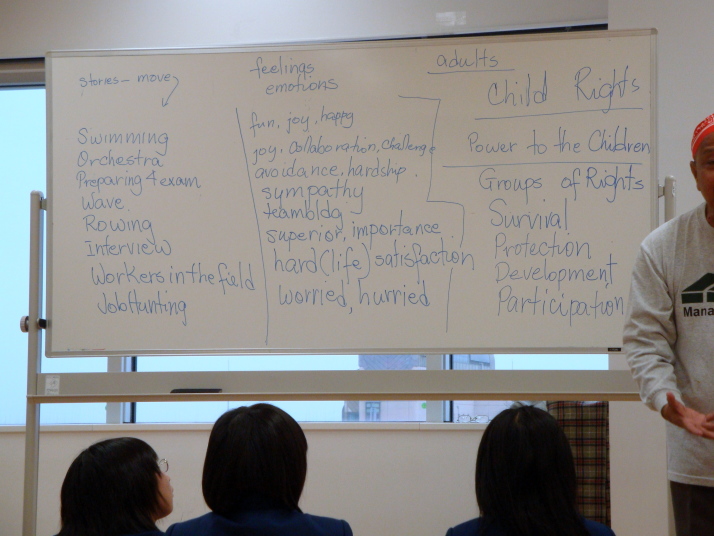 stories - move
Swimming
Orchestra
Preparing 4 exam
Wave.
Rowing
Interview
Workers in the field
JobHunting
feelings
emotions
fun, joy, happy
joy, collaboration, challenge
avoidance, hardship.
sympathy
teambldg
superior, importance
hard (life) satisfaction
worried, hurried
adults
Child Rights
Power to the Children
Groups of Rights
Survival
Protection
Development
Participation
Mana